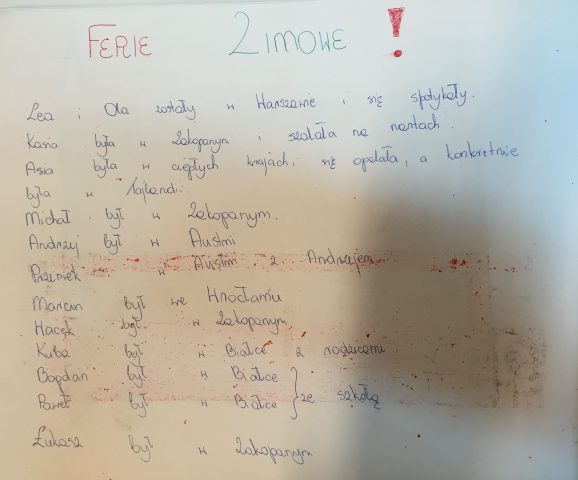 FERIE ZIMOWE !
Lea i Ola zostały w Warszawie i się spotykały.
Kasia była w Zakopanym i szalała na nartach.
Asia była w ciepłych krajach, się opalała, a konkretnie
była w Tajlandii.
Michał był w Zakopanym.
Andrzej był w Austrii
Przemek w Austrii z Andrzejem
Marcin był we Wrocławiu
Wacek był w Zakopanym.
Kuba był w Białce z rodzicami
Bogdan był w Białce
Paweł był w Białce } ze szkołą
Łukasz był w Zakopanym